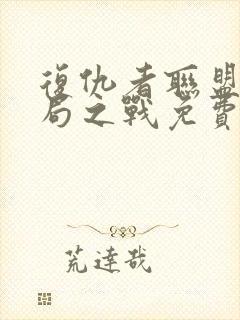 復仇者聯盟
局之戰免費
荒達哉